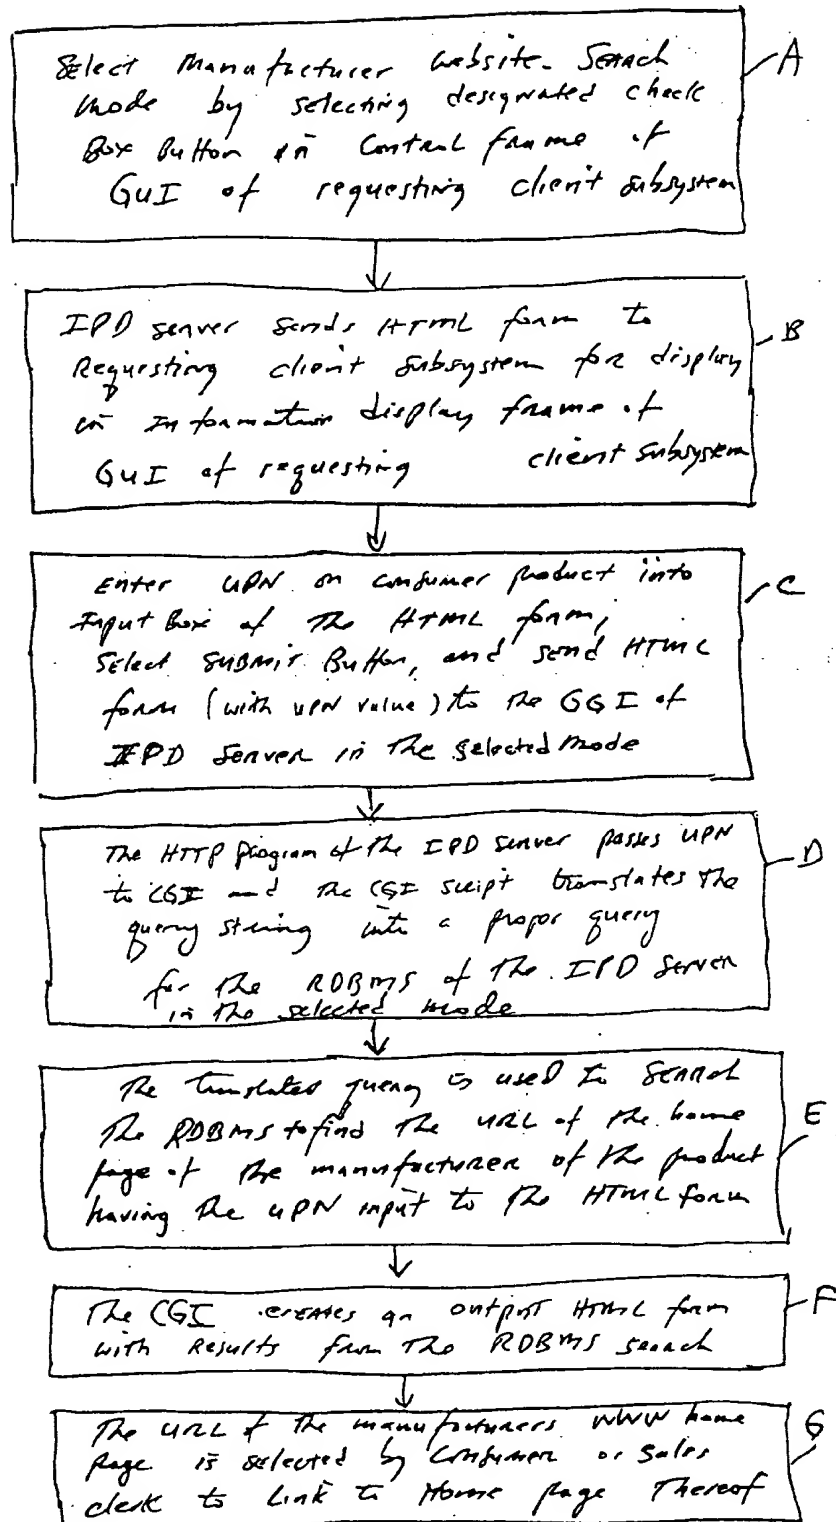 Select Manufacturer Website-Search
mode by selecting designated check
Box Button in Control frame of
GUI of requesting client subsystem
A
IPD server sends HTML form to
Requesting client subsystem for display
in Information display frame of
GUI of requesting client subsystem
B
Enter UPN on consumer product into
Input Box of the HTML form,
Select SUBMIT Button, and send HTML
form (with UPN value) to the GGI of
IPD Server in the selected mode
C
The HTTP program of the IPD server passes UPN
to CGI and the CGI script translates the
query string into a propor query
for the RDBMS of the IPD server
in the selected mode
D
The translated query is used to Search
The RDBMS to find the URL of the home
page of the manufacturer of the product
having the UPN input to the HTML form
E
The CGI creates an output HTML form
with Results from the RDBMS search
F
The URL of the manufacturers WWW home
page is selected by Consumer or Sales
clerk to Link to Home page Thereof
G